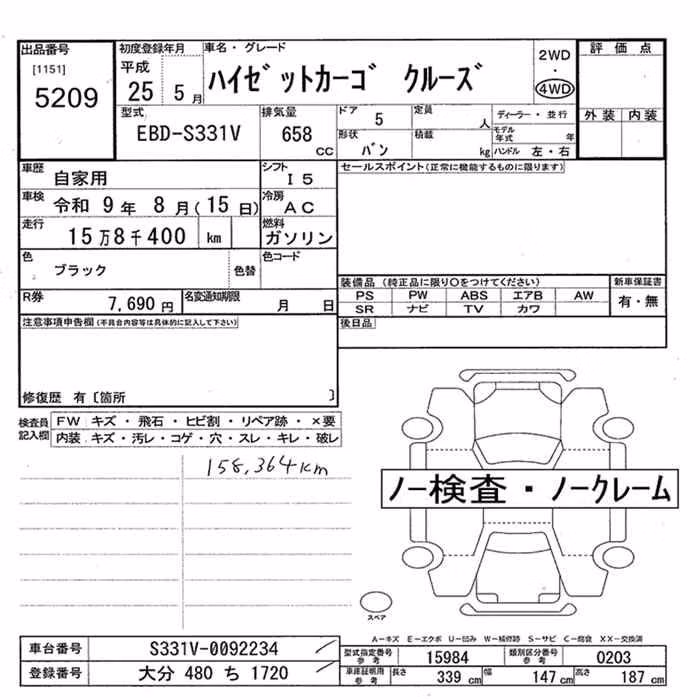 出品番号
[1151]
5209
初度登録年月
平成
25 5 月
車名・グレード
ハイゼットカーゴ クルーズ
2WD
・
4WD
評価点
外装 内装
型式
EBD-S331V
排気量
658
cc
ドア
5
定員
人
ディーラー・並行
モデル年式
年
形状
バン
積載
kg
ハンドル 左・右
車歴
自家用
シフト
I5
セールスポイント(正常に機能するものに限ります)
車検
令和 9 年 8 月(15 日)
冷房
AC
走行
15 万 8 千 400 km
燃料
ガソリン
色
ブラック
色替
色コード
R券
7,690 円
名変通知期限
月 日
装備品 (純正品に限り○をつけてください)
PS PW ABS エアB AW
SR ナビ TV カワ
新車保証書
有・無
後日品
注意事項申告欄(不具合内容等は具体的に記入して下さい)
修復歴 有〔箇所 〕
検査員記入欄
FW キズ・飛石・ヒビ割・リペア跡・×要
内装 キズ・汚レ・コゲ・穴・スレ・キレ・破レ
158,364km
ノー検査・ノークレーム
スペア
A-キズ E-エクボ U-凹み W-補修跡 S-サビ C-腐食 XX-交換済
車台番号
S331V-0092234
登録番号
大分 480 ち 1720
型式指定番号
参考
15984
類別区分番号
参考
0203
車庫証明用
参考
長さ
339 cm
幅
147 cm
高さ
187 cm